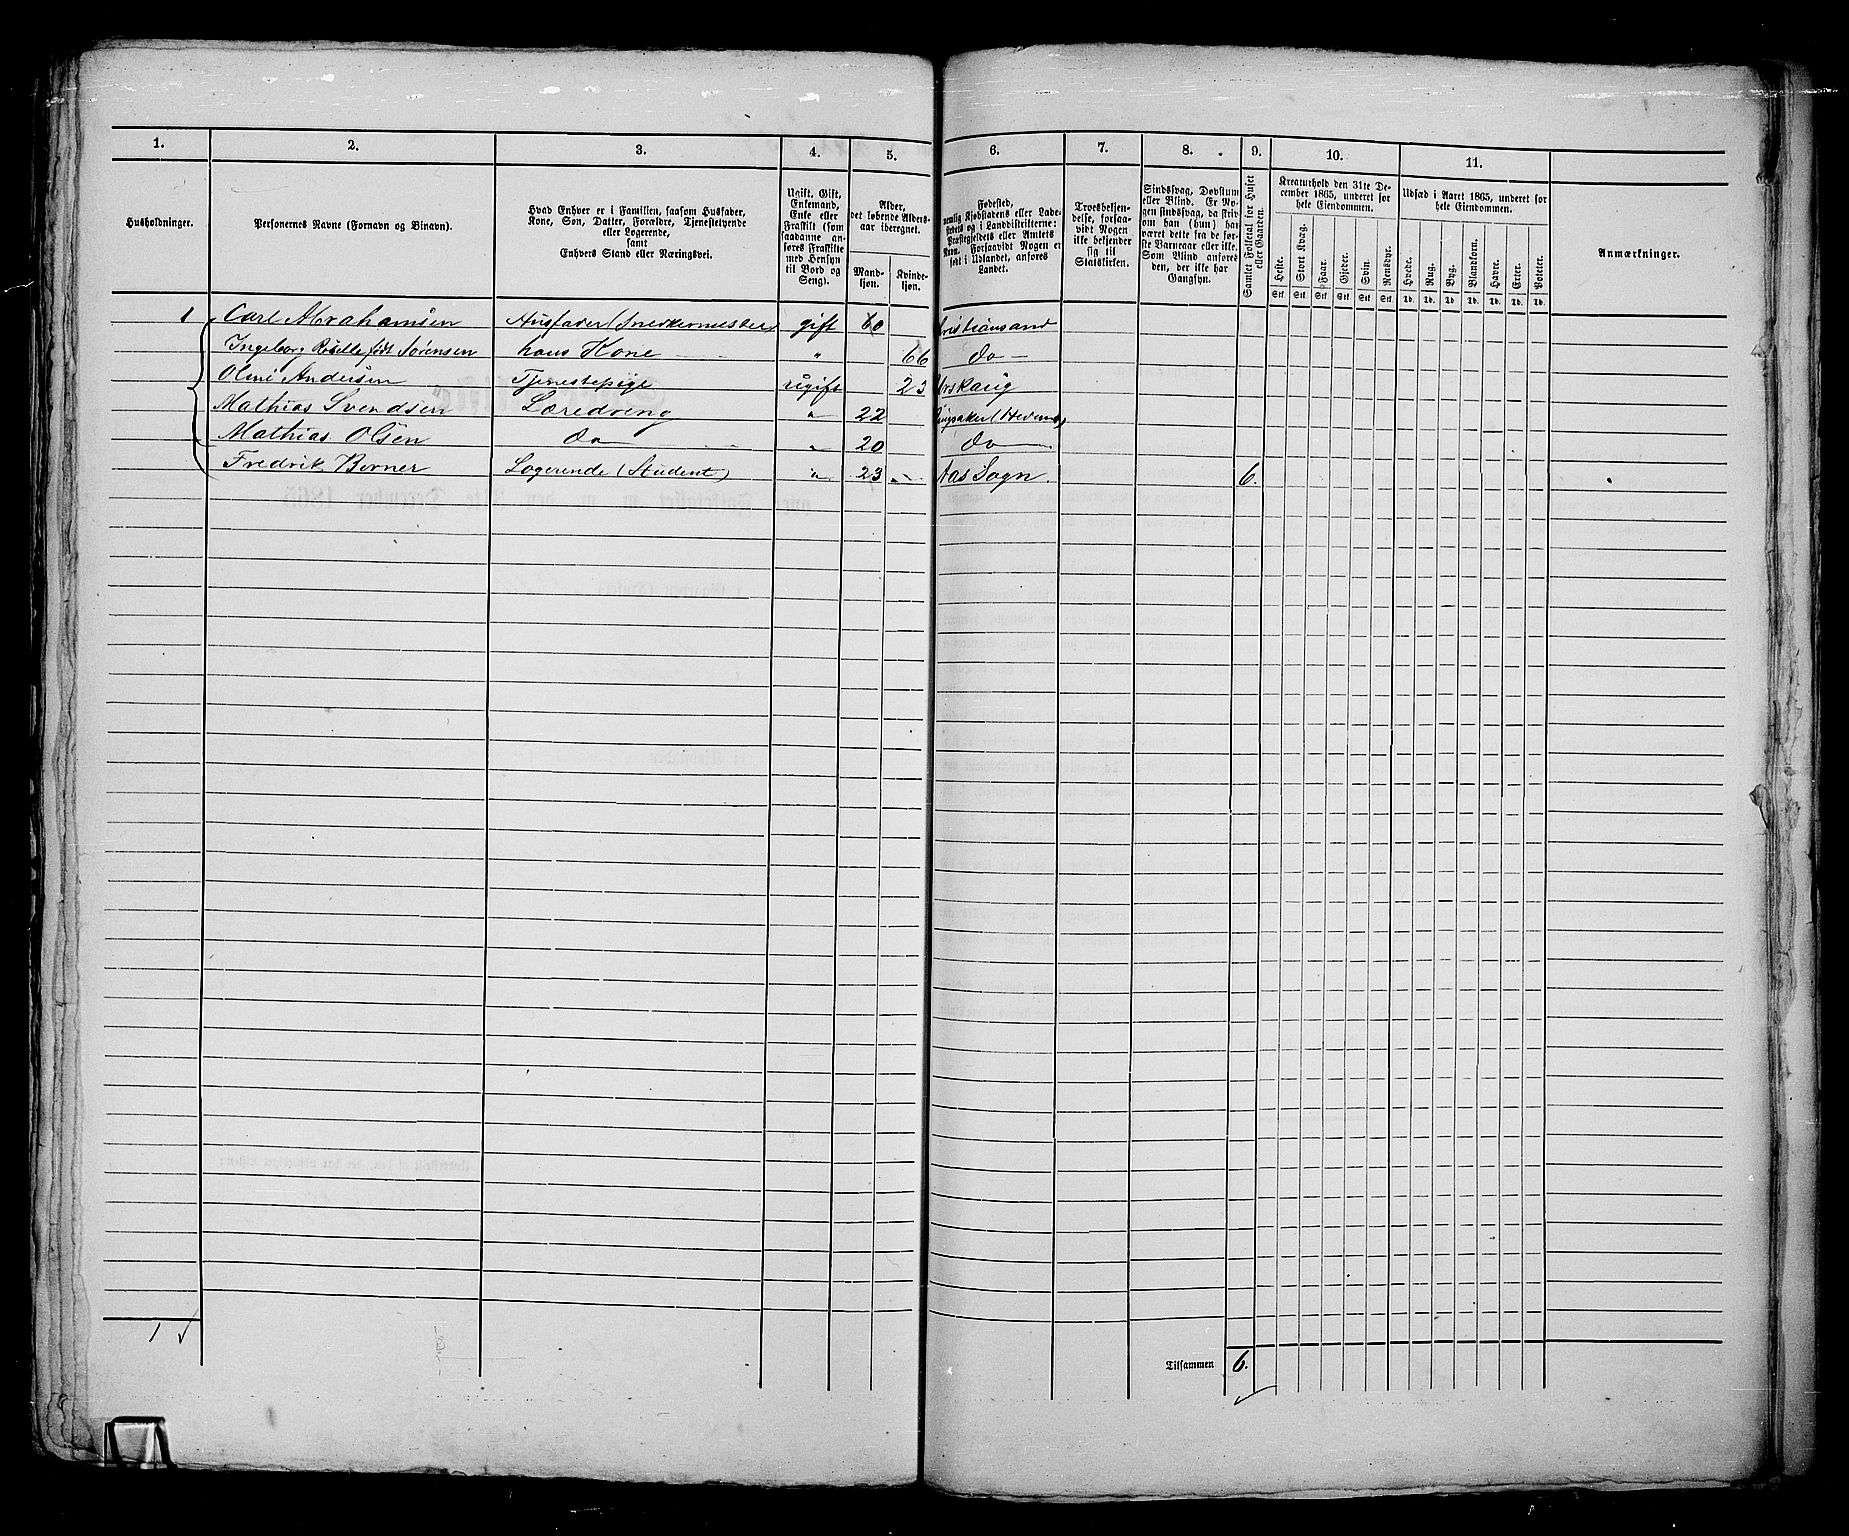 1. 2. 3. 4. 5. 6. 7. 8. 9. 10. 11.
Husholdninger.
Personernes Navne (Fornavn og Binavn).
Hvad Enhver er i Familien, saasom Husfader,
Kone, Søn, Datter, Forældre, Tjenestetyende
eller Logerende,
samt
Enhvers Stand eller Næringsvei.
Ugift, Gift,
Enkemand,
Enke eller
Fraskilt (som
saadanne an-
føres Fraskilte
med Hensyn
til Bord og
Seng).
Alder,
det løbende Alders-
aar iberegnet.
Mand-
kjøn.
Kvinde-
kjøn.
Fødested,
nemlig Kjøbstadens eller Lade-
stedets og i Landdistrikterne:
Præstegjeldets eller Amtets
Navn. Forsaavidt Nogen er
født i Udlandet, anføres
Landet.
Troesbekjen-
delse, forsaa-
vidt Nogen
ikke bekjender
sig til
Statskirken.
Sindssvag, Døvstum
eller Blind. Er No-
gen sindssvag, da skriv
om han (hun) har
været dette fra de før-
ste Barneaar eller ikke.
Som Blind anføres
den, der ikke har
Gangsyn.
Samlet Folketal for Huset
eller Gaarden.
Kreaturhold den 31te De-
cember 1865, underet for
hele Eiendommen.
Heste. Stort Kvæg. Faar. Gjeder. Svin. Rensdyr.
Stk. Stk. Stk. Stk. Stk. Stk.
Udsæd i Aaret 1865, underet for
hele Eiendommen.
Hvede. Rug. Byg. Blandkorn. Havre. Erter. Poteter.
Td. Td. Td. Td. Td. Td. Td.
Anmærkninger.
1 Carl Abrahamsen Husfader (Snedkermester) gift 60 Christiansand
Ingeborg født Sørensen hans Kone " 66 do
Andersen Tjenestepige ugift 23
Mathias Svendsen Læredreng " 22 Ringsaker
Mathias Olsen do " 20 do
Fredrik Berner Logerende (Student) " 23 Aas Sogn. 6.
1
Tilsammen 6.